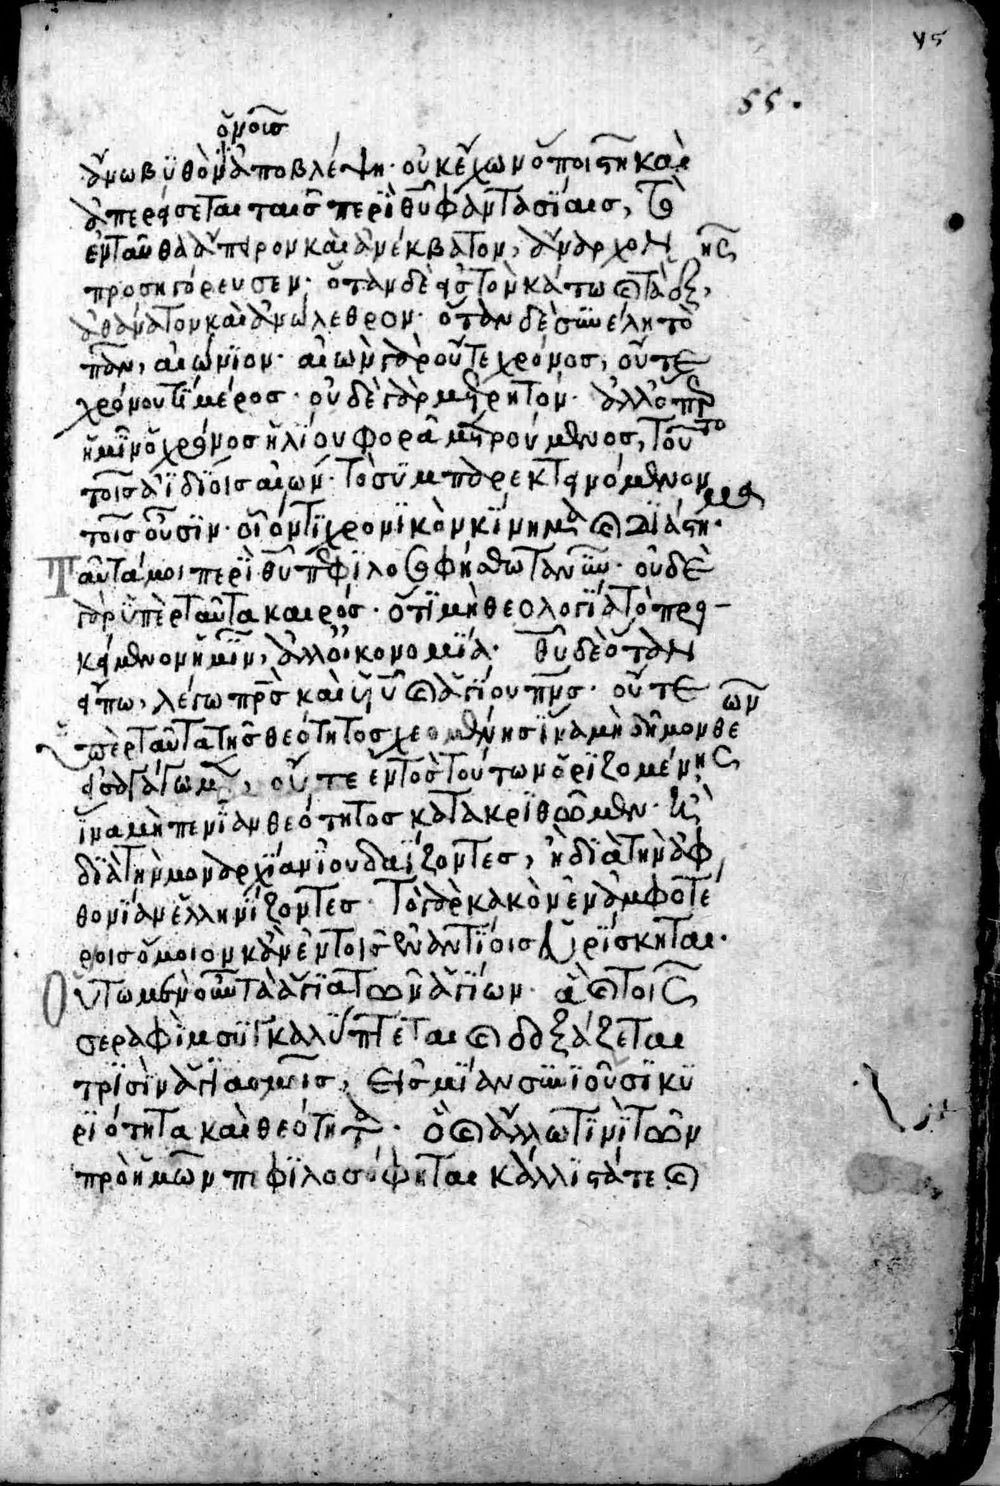 ὁ νοῦς
ἄνω βυθὸν ἀποβλέψη· οὐκ ἔχων ὅποι στῆ καὶ
ἀπερείσεται ταῖς περὶ θῦ φαντασίαις, τὸ
ἐνταῦθα ἄπειρον καὶ ἀνέκβατον, ἄναρχον
προσηγόρευσεν· ὅταν δὲ εἰς τὸν κάτω καὶ τὰ ἑξῆς,
ἀθάνατον καὶ ἀνώλεθρον· ὅταν δὲ συνέλη τὸ
πᾶν, αἰώνιον· αἰὼν γὰρ οὔτε χρόνος, οὔτε
χρόνου τὶ μέρος· οὐδὲ γὰρ μετρητόν· ἀλλ' ὅπερ
ἡμῖν ὁ χρόνος ἡλίου φορᾶ μετρούμενος, τοῦτο
τοῖς ἀϊδίοις αἰών· τὸ συμπαρεκτεινόμενον
τοῖς οὖσιν· οἷόν τι χρονικὸν κίνημα καὶ διάστημα·
Ταῦτά μοι περὶ θῦ πεφιλοσοφήσθω τανῦν· οὐδὲ
γὰρ ὑπὲρ ταῦτα καιρός· ὅτι μὴ θεολογία τὸ προ-
κείμενον ἡμῖν, ἀλλ' οἰκονομία· θῦ δὲ ὅταν
εἴπω, λέγω πρσ καὶ υἱοῦ καὶ ἁγίου πνς· οὔτε
ὑπὲρ ταῦτα τῆς θεότητος χεομένης ἵνα μὴ δῆμον θεῶν
εἰσαγάγωμεν, οὔτε ἐντὸς τούτων ὁριζομένης,
ἵνα μὴ πενίαν θεότητος κατακριθῶμεν· ἢ
διὰ τὴν μοναρχίαν ἰουδαΐζοντες, ἢ διὰ τὴν ἀφ
θονίαν ἑλληνίζοντες· τὸ γὰρ κακὸν ἐν ἀμφοτέ
ροις ὅμοιον κἂν ἐν τοῖς ἐναντίοις εὑρίσκηται·
Οὕτω μὲν οὖν τὰ ἅγια τῶν ἁγίων· ἃ καὶ τοῖς
σεραφὶμ συγκαλύπτεται καὶ δοξάζεται
τρισὶν ἁγιασμοῖς, εἰς μίαν συνιοῦσι κυ
ριότητα καὶ θεότητα· ὃ καὶ ἄλλω τινὶ τῶν
πρὸ ἡμῶν πεφιλοσόφηται κάλλιστά τε καὶ